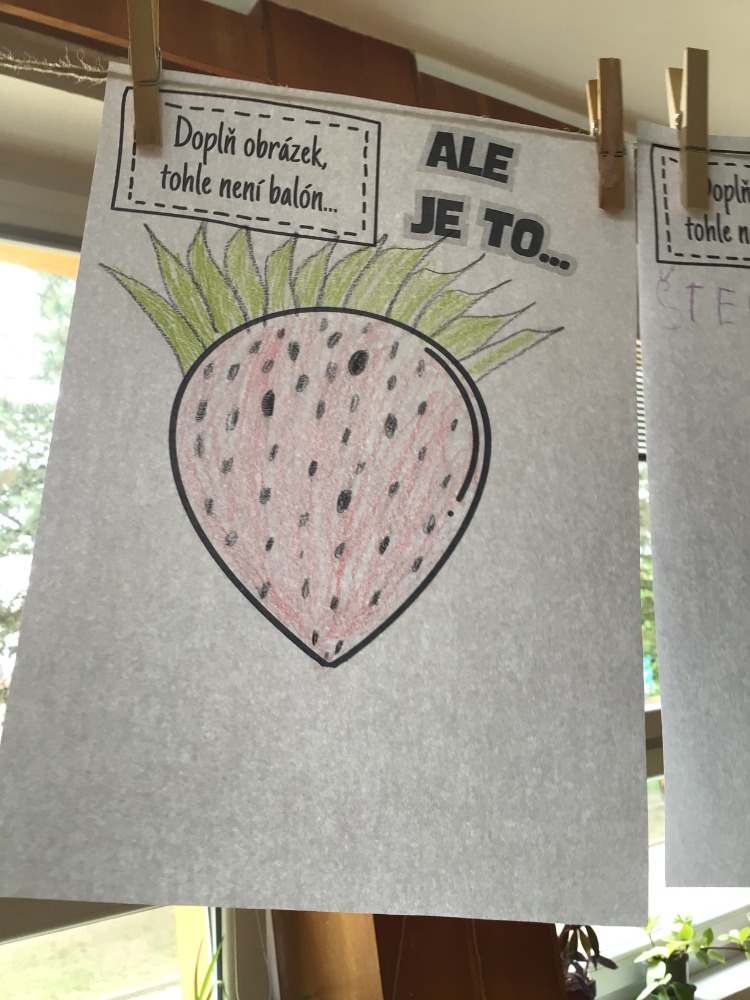 Doplň obrázek,
tohle není balón...
ALE
JE TO...
Doplň
tohle
ŠTE